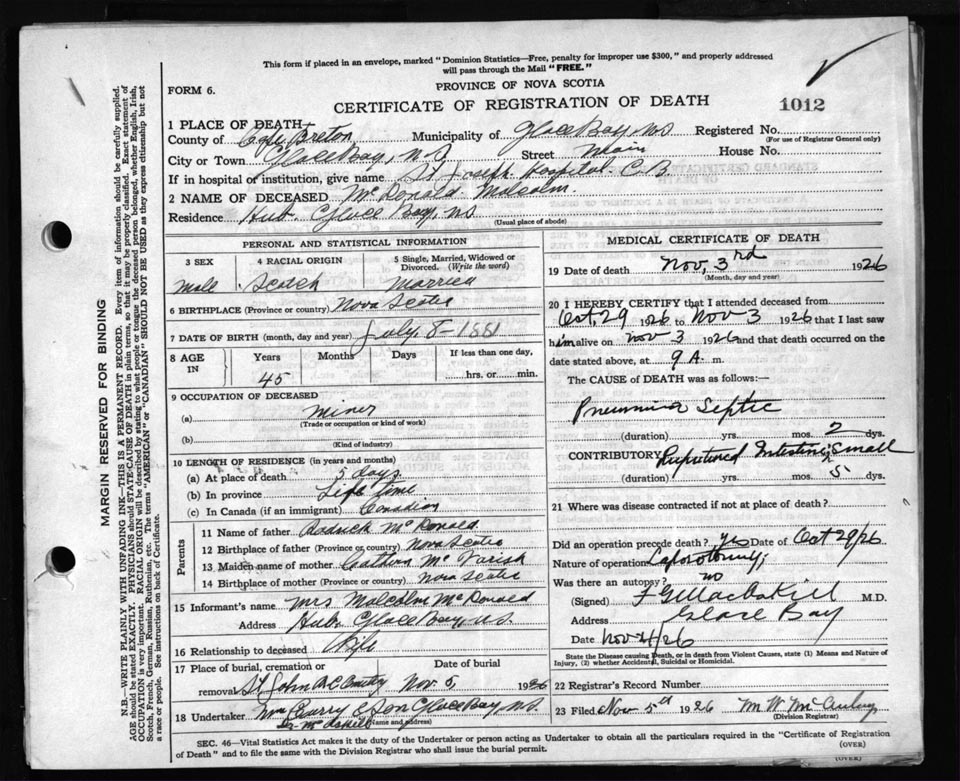 This form if placed in an envelope, marked "Dominion Statistics—Free, penalty for improper use $300," and properly addressed
will pass through the Mail "FREE."
FORM 6.
PROVINCE OF NOVA SCOTIA
CERTIFICATE OF REGISTRATION OF DEATH
1012
1 PLACE OF DEATH—
County of Cape Breton Municipality of Glace Bay, N.S Registered No.
(For use of Registrar General only)
City or Town Glace Bay, N.S Street Main House No.
If in hospital or institution, give name St Joseph Hospital C.B
2 NAME OF DECEASED McDonald Malcolm.
Residence Hub. Glace Bay, N.S
(Usual place of abode)
PERSONAL AND STATISTICAL INFORMATION
3 SEX
Male
4 RACIAL ORIGIN
Scotch
5 Single, Married, Widowed or Divorced. (Write the word)
Married
6 BIRTHPLACE (Province or country) Nova Scotia
7 DATE OF BIRTH (month, day and year) July. 8-1881
8 AGE IN
Years Months Days If less than one day,
45 hrs. or min.
9 OCCUPATION OF DECEASED
(a) Miner
(Trade or occupation or kind of work)
(b)
(Kind of industry)
10 LENGTH OF RESIDENCE (in years and months)
(a) At place of death 5 days
(b) In province Life time
(c) In Canada (if an immigrant) Canadian
Parents
11 Name of father Roderick McDonald
12 Birthplace of father (Province or country) Nova Scotia
13 Maiden name of mother Mc
14 Birthplace of mother (Province or country) Nova Scotia
15 Informant's name Mrs Malcolm McDonald
Address Hub. Glace Bay, N.S.
16 Relationship to deceased Wife
17 Place of burial, cremation or Date of burial
removal St. John R.C. Nov 5 1926
18 Undertaker Wm & Son Glace Bay, N.S.
(Name and address)
MEDICAL CERTIFICATE OF DEATH
19 Date of death Nov, 3rd 1926
(Month, day and year)
20 I HEREBY CERTIFY that I attended deceased from
Oct, 29 1926 to Nov 3 1926 that I last saw
him alive on Nov 3 1926 and that death occurred on the
date stated above, at 9 A. m.
The CAUSE of DEATH was as follows:—
Pneumonia Septic
(duration) yrs. mos. 2 dys.
CONTRIBUTORY Ruptured Intestine, Small
(duration) yrs. mos. 5 dys.
21 Where was disease contracted if not at place of death?
Did an operation precede death? yes Date of Oct 29/26
Nature of operation Laporotomy;
Was there an autopsy? no
(Signed) M.D.
Address Glace Bay
Date Nov 4/26
State the Disease causing Death, or in death from Violent Causes, state (1) Means and Nature of Injury, (2) whether Accidental, Suicidal or Homicidal.
22 Registrar's Record Number
23 Filed Nov 5th 1926 M. W.
(Division Registrar)
SEC. 46—Vital Statistics Act makes it the duty of the Undertaker or person acting as Undertaker to obtain all the particulars required in the "Certificate of Registration
of Death" and to file the same with the Division Registrar who shall issue the burial permit. (OVER)
(OVER)
MARGIN RESERVED FOR BINDING
N.B.—WRITE PLAINLY WITH UNFADING INK—THIS IS A PERMANENT RECORD. Every item of information should be carefully supplied.
AGE should be stated EXACTLY. PHYSICIANS should STATE CAUSE OF DEATH in plain terms, so that it may be properly classified. Exact statement of
OCCUPATION is very important. RACIAL ORIGIN will be described by stating to what people or tongue the deceased person belonged, whether English, Irish,
Scotch, French, German, Russian, Ruthenian, etc. The terms "AMERICAN" or "CANADIAN" SHOULD NOT BE USED as they express citizenship but not
a race or people. See instructions on back of Certificate.